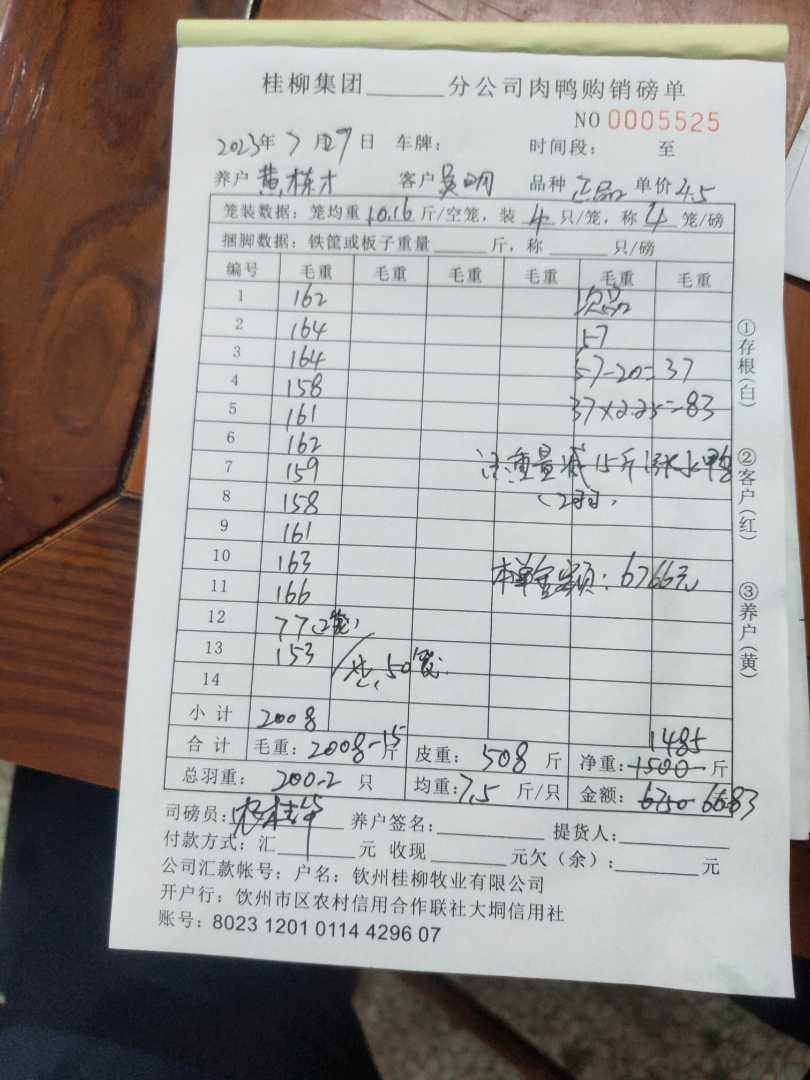 桂柳集团______分公司肉鸭购销磅单
NO 0005525
2023年7月29日 车牌： 时间段： 至
养户 黄栋才 客户 吴明 品种 正品 单价 4.5
笼装数据：笼均重 10.16 斤/空笼，装 4 只/笼，称 4 笼/磅
捆脚数据：铁筐或板子重量______斤，称______只/磅
编号 毛重 毛重 毛重 毛重 毛重 毛重
1 162 次品
2 164 57
3 164 57-20=37
4 158 37×2.25=83
5 161
6 162
7 159 注:重量减15斤 水鸭
8 158 (2羽)
9 161
10 163 本单金额：6766元
11 166
12 77(2笼)
13 153 共50笼
14
小计 2008
合计 毛重：2008-15斤 皮重：508斤 净重：1500 1485斤
总羽重：200-2 只 均重：7.5 斤/只 金额：6750 6683
司磅员： 养户签名： 提货人：
付款方式：汇______元 收现______元欠（余）：______元
公司汇款帐号：户名：钦州桂柳牧业有限公司
开户行：钦州市区农村信用合作联社大垌信用社
账号：8023 1201 0114 4296 07
①存根（白）
②客户（红）
③养户（黄）